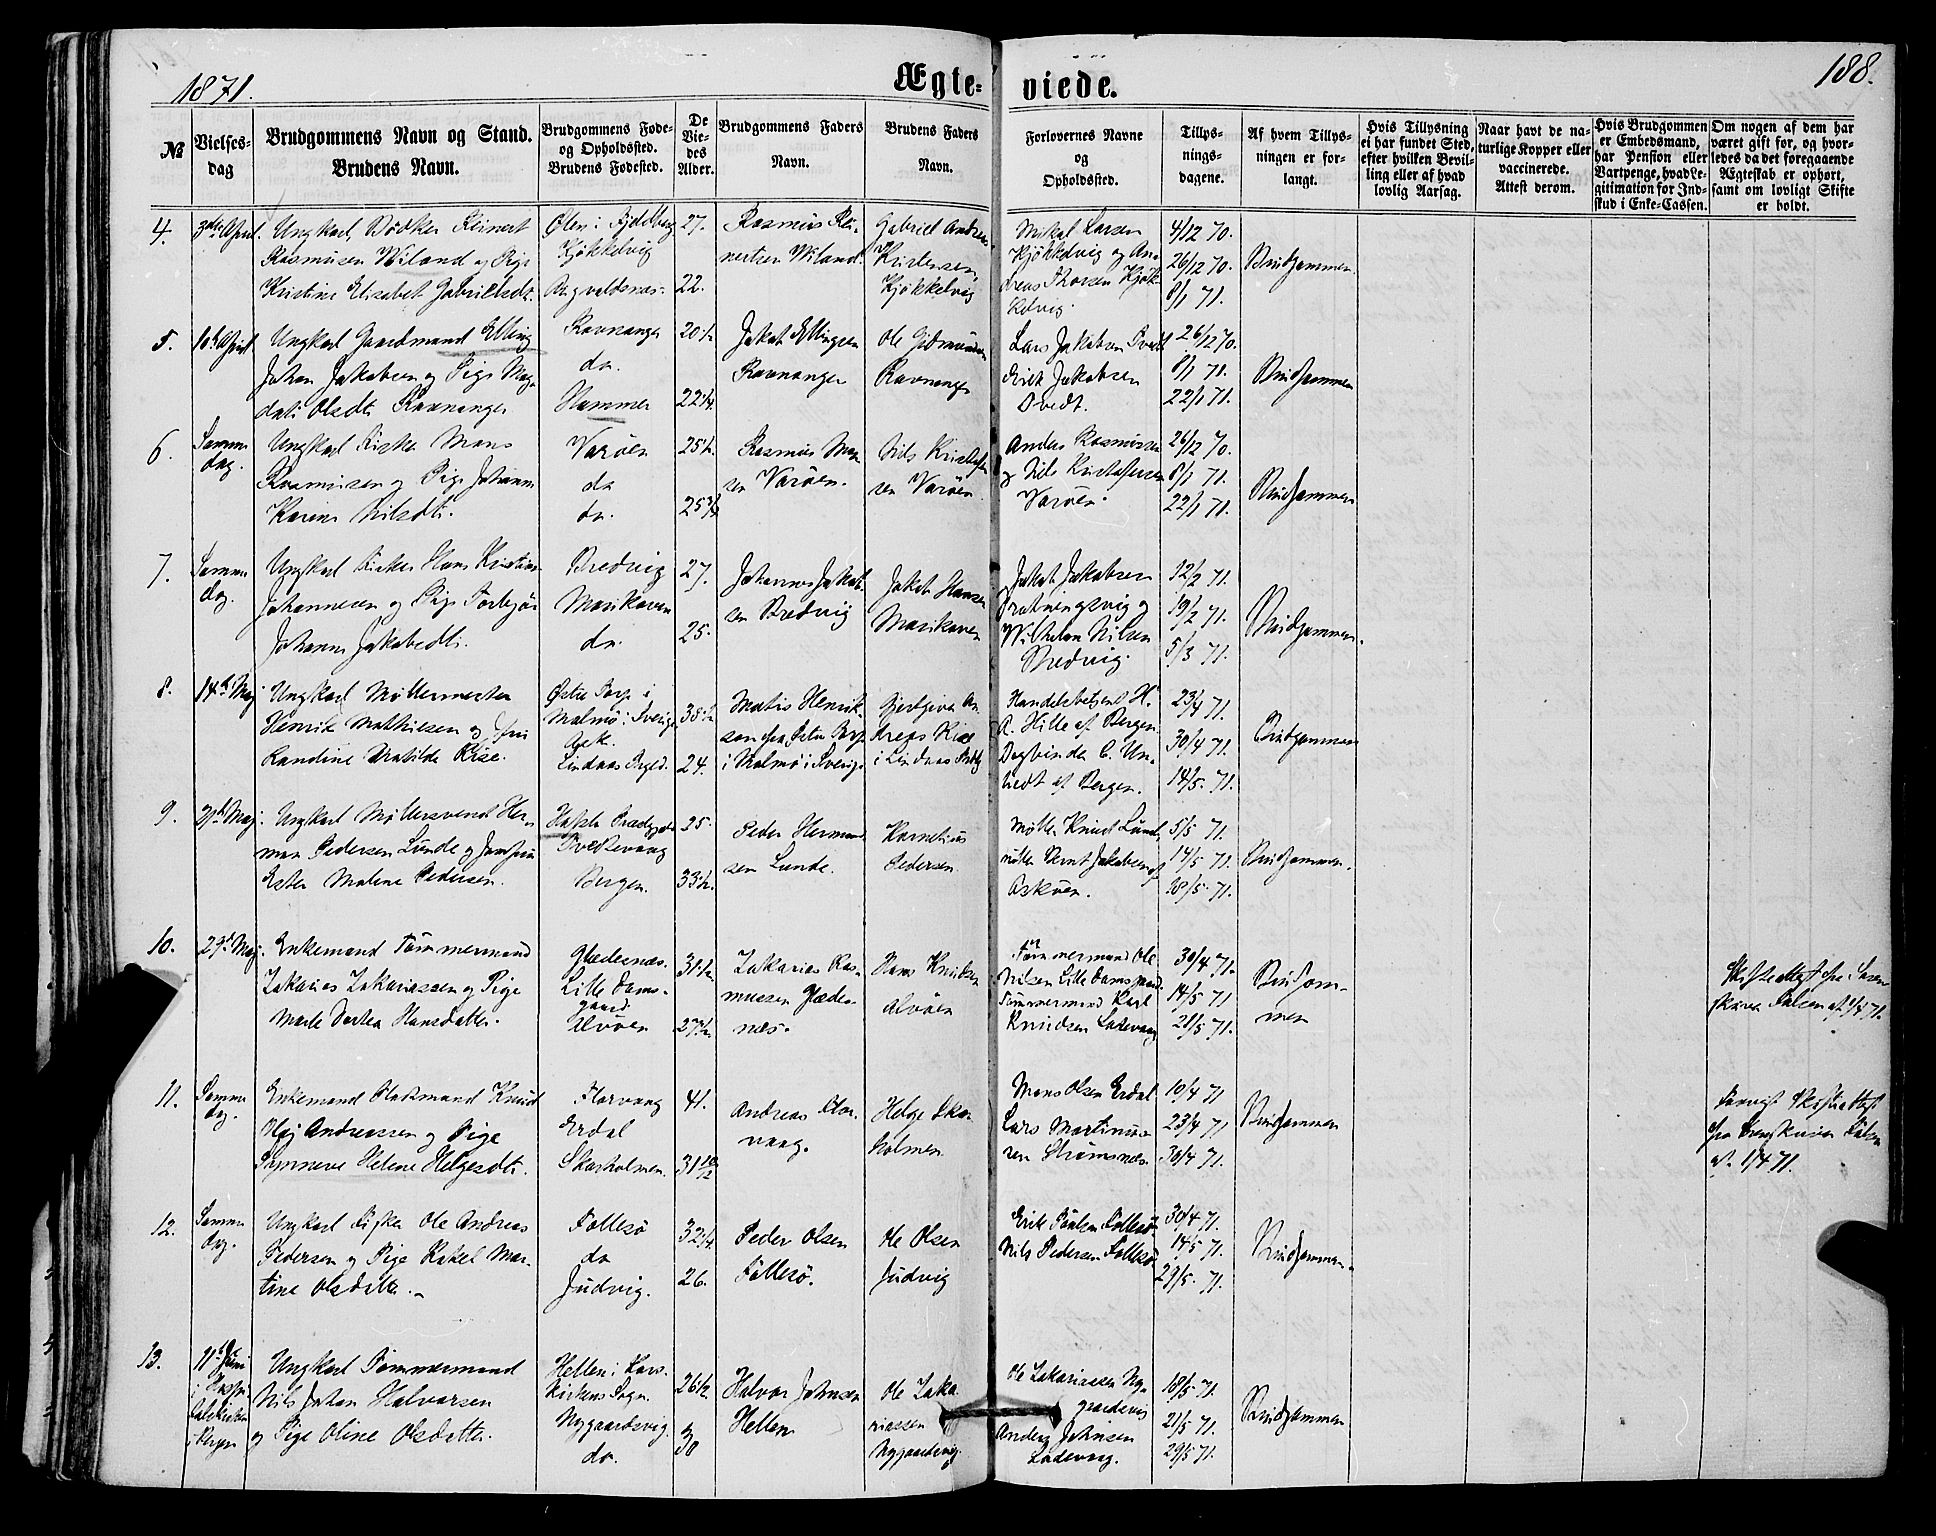 1871.
Ægteviede.
188.
№
Vielsesdag
Brudgommens Navn og Stand.
Brudens Navn.
Brudgommens Fødeog Opholdssted.
Brudens Fødested.
De Viedes Alder.
Brudgommens Faders Navn.
Brudens Faders Navn.
Forlovernes Navne og Opholdssted.
Tillysningsdagene.
Af hvem Tillysningen er forlangt.
Hvis Tillysning ei har fundet Sted, efter hvilken Bevilling eller af hvad lovlig Aarsag.
Naar havt de naturlige Kopper eller vaccinerede. Attest derom.
Hvis Brudgommen er Embedsmand, har Pension eller Vartpenge, hvad Legitimation for Indskud i Enke-Cassen.
Om nogen af dem har været gift for, og hvorledes da det foregaaende Ægteskab er ophört, samt om lovligt Skifte er holdt.
4.
3die April.
Ungkarl, Bödker Reinert
Rasmusen Wiland og Pige
Kristine Elisabet Gabrielsdt.
Ölen i Fjeldberg
Kjökkelvig
Avgvaldsnæs.
27.
22.
Rasmus Reinertsen Wiland.
Gabriel Andreas
Kristensen,
Kjökkelvig
Mikal Larsen
Kjökkelvig og Andreas Thorsen Kjökkelvig.
4/12 70.
26/12 70.
8/1 71.
Brudgommen
5.
10de April
Ungkarl Gaardmand Elling
Johan Jakobsen og Pige Magdali Olsdt. Ravnanger
Ravnanger
do.
Hammer
20 1/2
22 1/4.
Jakob Ellingsen
Ravnanger
Ole Gudmundsen
Ravnanger
Lars Jakobsen Tvedt
Erik Jakobsen
Tvedt.
26/12 70.
8/1 71.
22/1 71.
Brudgommen
6.
Samme dag.
Ungkarl Fisker Mons
Rasmusen og Pige Johanne
Karine Nilsdt.
Varöen
do
do.
25 1/2.
25 3/4
Rasmus Monsen Varöen.
Nils Kristoffersen Varöen.
Anders Rasmusen
og Nils Kristoffersen
Varöen.
26/12 70.
8/1 71.
22/1 71.
Brudgommen
7.
Samme dag.
Ungkarl Fisker Hans Kristian
Johannesen og Pige Torbjör
Johanne Jakobsdt.
Bredvig
Marikoven
do.
27.
25.
Johannes Jakobsen Bredvig
Jakob Hansen
Marikoven
Jakob Jakobsen
Wilhelm Nilsen
Bredvig.
12/2 71.
19/2 71.
5/3 71.
Brudgommen.
8.
14de Maj
Ungkarl Möllermester
Henrik Mathiesen og
Randine Matilde Kise.
Östre Torp i
Malmö i Sverige
Ask.
Lindaas Prgjd.
38 1/2
24.
Matis Henriksen fra Östre Torp
i Malmö i Sverige
Gjestgiver Andreas Kise
i Lindaas Prstgj
Handelsbetjent H.
R. Hille af Bergen
C. Unvedt af Bergen.
23/4 71.
30/4 71.
14/5 71.
Brudgommen
9.
Maj.
Ungkarl Möllersvend Herman Pedersen Lunde og Jomfru
Ester Malene Pedersen.
Tveitevaag
Bergen.
25.
33 1/2.
Peder Hermansen Lunde.
Kornelius
Pedersen
Möller Knud Lunde,
Möller Bernt Jakobsen af
Asköen.
5/5 71.
14/5 71.
18/5 71.
Brudgommen.
10.
29de Maj.
Enkemand Tömmermand
Zakarias Zakariassen og Pige
Marte Dortea Hansdatter.
Glædernæs.
Lille Damsgaard
Alvöen
31 1/2
27 1/2.
Zakarias Rasmussen Glædernæs.
Hans Knudsen
Alvöen
Tömmermand Ole
Nilsen Lille Damsgaard.
Tömmermand Karl
Knudsen Ladevaag
30/4 71.
14/5 71
21/5 71.
Brudgommen
Skifteattest fra Sorenskriver Falsen af 1/4 71.
11.
Samme dag.
Enkemand Pladsmand Knud
Haj Andreassen og Pige
Synneve Helene Helgesdt.
Florvaag
Erdal
Skarholmen.
41.
31 10/12
Andreas Florvaag.
Helge Skarholmen
Mons Olsen Erdal
Lars Martinussen Strömsnæs.
10/4 71
23/4 71
30/4 71.
Brudgommen
Foreviist Skifteattest
fra Sorenskriver Falsen
af 1/4 71.
12.
Samme dag.
Ungkarl Fisker Ole Andreas
Pedersen og Pige Rakel Martine Olsdatter.
Follesö
do
Judvig.
32 1/4.
26.
Peder Olsen
Follesö.
Ole Olsen
Judvig
Erik Paulsen Follesö.
Nils Pedersen Follesö
30/4 71.
14/5 71.
29/5. 71.
Brudgommen.
13.
11te Juni
i Bergen
Ungkarl Tömmermand
Nils Johan Halvorsen
og Pige Oline Olsdatter.
Hellen i Korskirkens Sogn.
Nygaardsvig.
do.
26 1/2.
30
Halvor Johnsen
Hellen
Ole Zakariassen
Nygaardsvig
Ole Zakariassen Nygaardsvig
Anders Johnsen
Ladevaag.
18/5 71.
21/5 71.
29/5 71.
Brudgommen